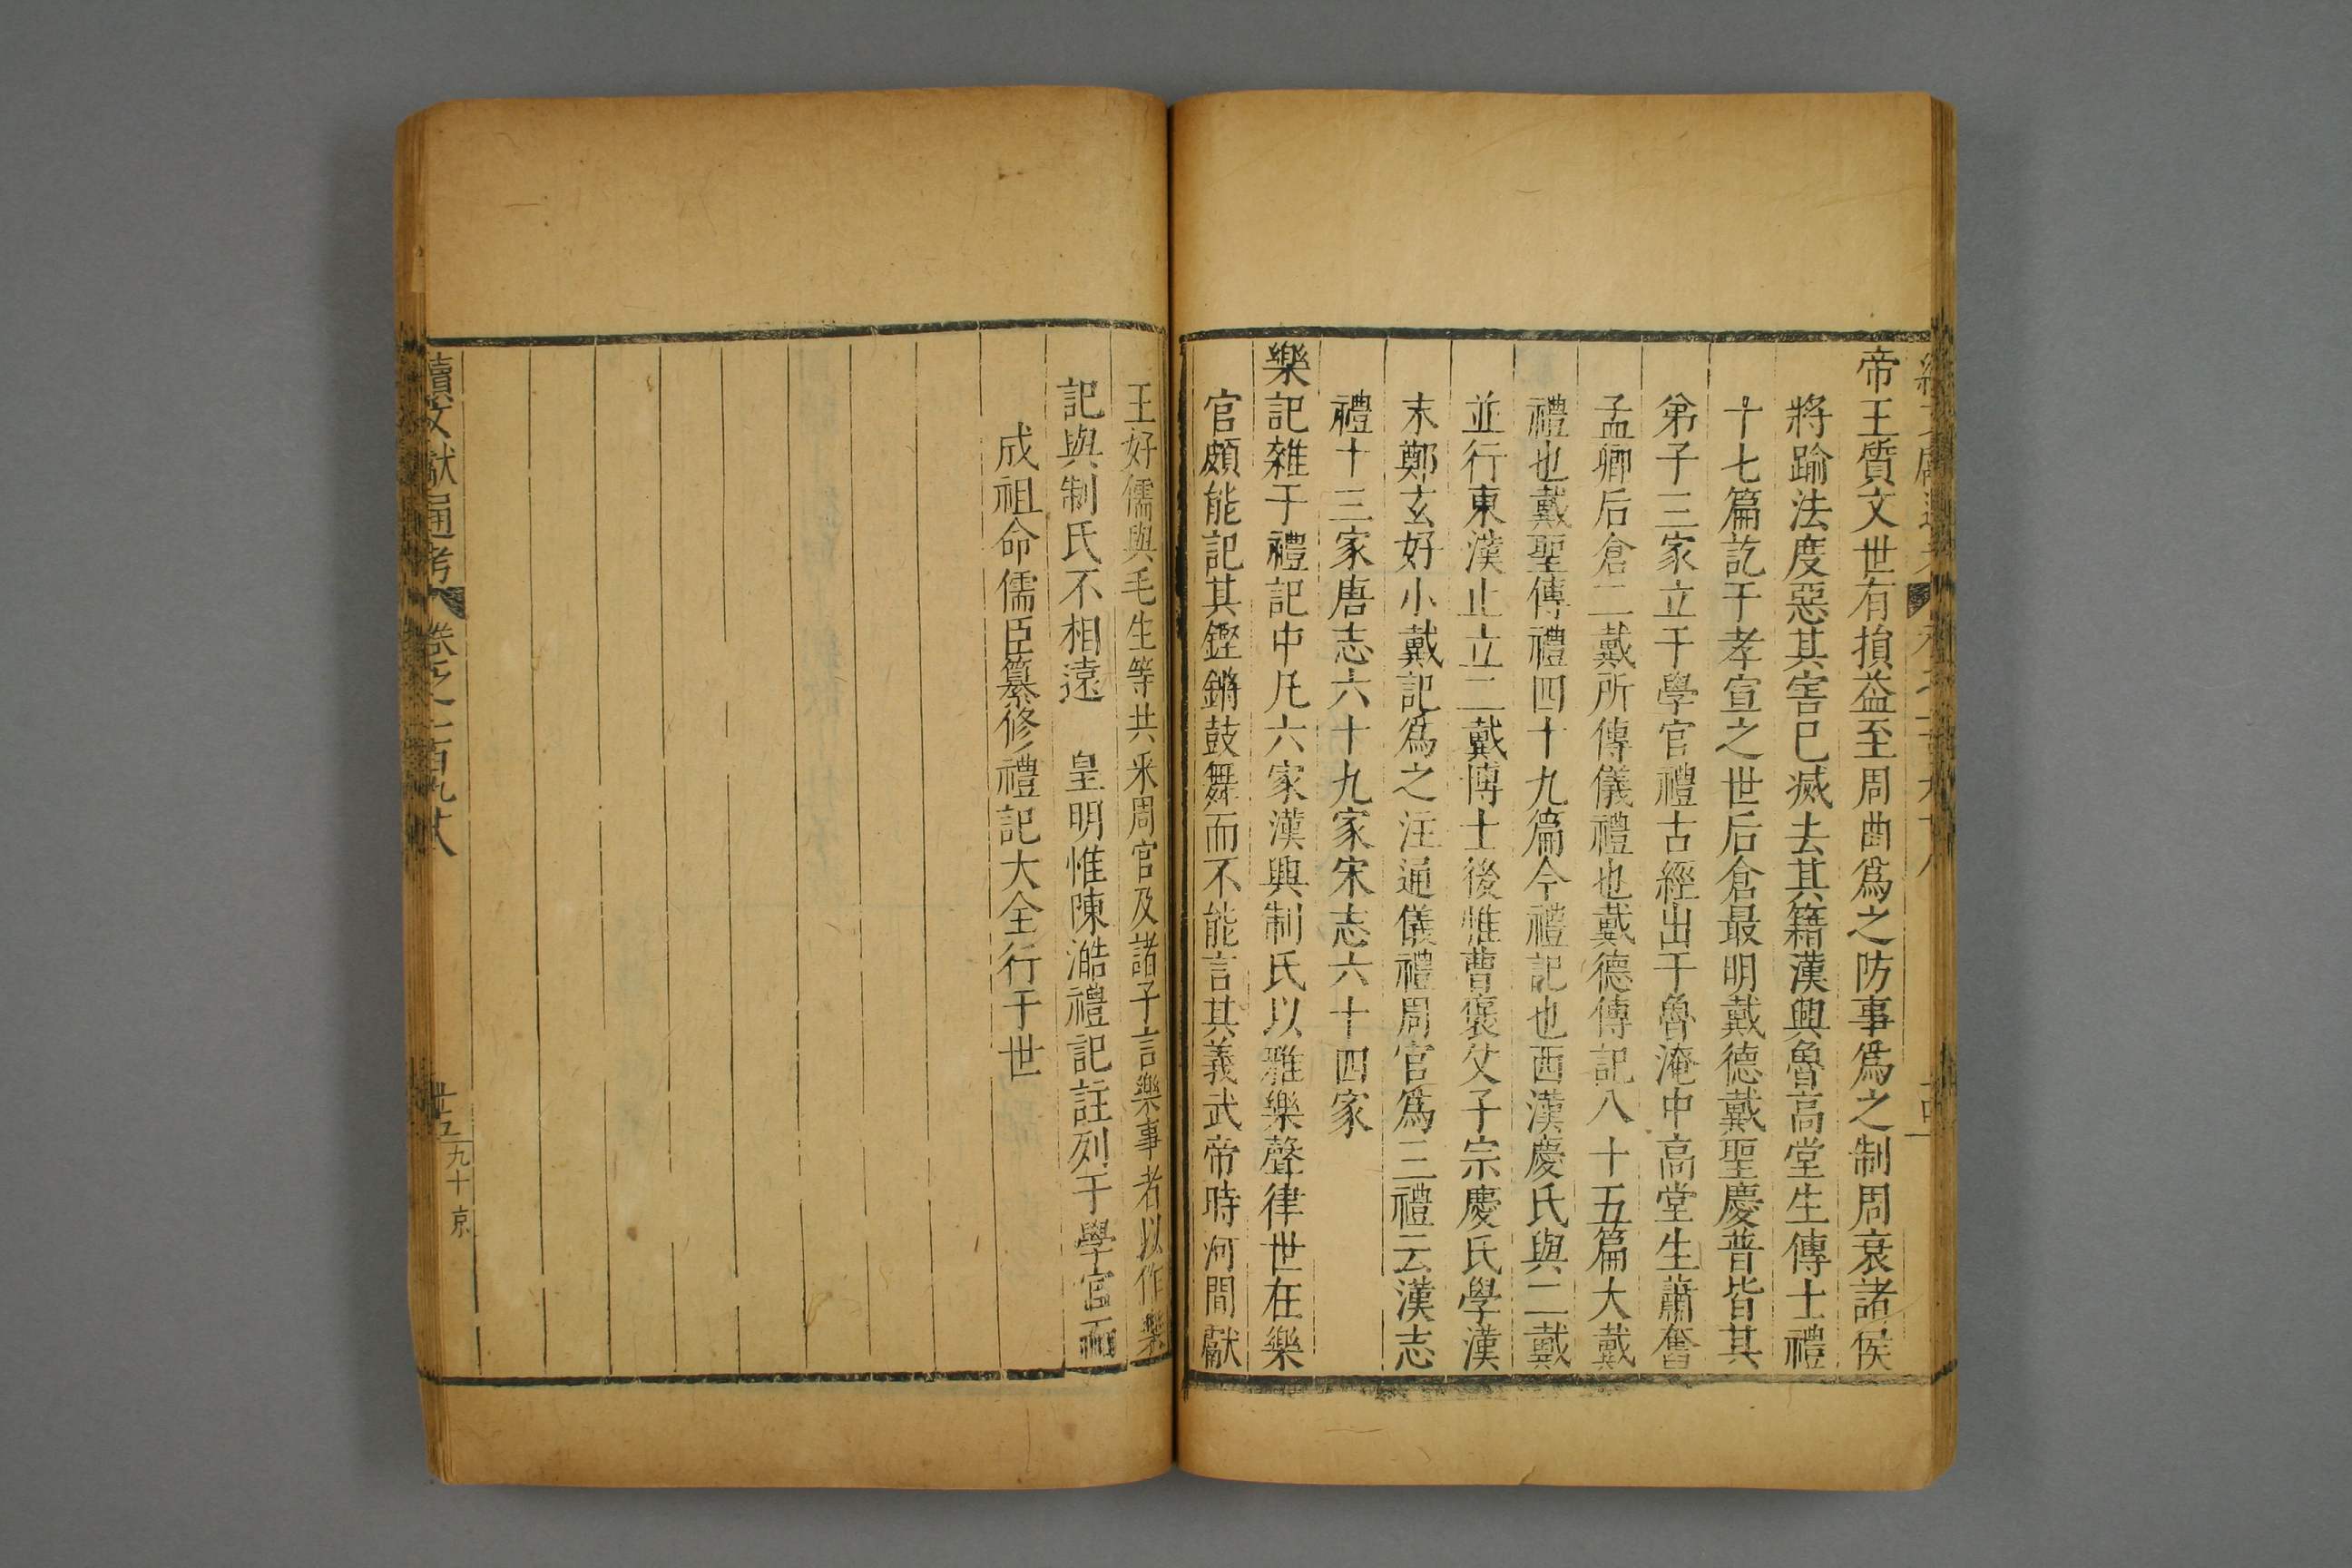 帝王質文世有損益至周曲爲之防事爲之制周衰諸侯
將踰法度惡其害已滅去其籍漢興魯高堂生傳士禮
十七篇訖于孝宣之世后倉最明戴德戴聖慶普皆其
弟子三家立于學官禮古經出于魯淹中高堂生蕭奮
孟卿后倉二戴所傳儀禮也戴德傳記八十五篇大戴
禮也戴聖傳禮四十九篇今禮記也西漢慶氏與二戴
並行東漢止立二戴博士後惟曹褒父子宗慶氏學漢
末鄭玄好小戴記爲之注通儀禮周官爲三禮云漢志
禮十三家唐志六十九家宋志六十四家
樂記雜于禮記中凡六家漢興制氏以雅樂聲律世在樂
官頗能記其鏗鏘鼓舞而不能言其義武帝時河間獻
王好儒與毛生等共釆周官及諸子言樂事者以作樂
記與制氏不相遠　皇明惟陳澔禮記註列于學官而
成祖命儒臣纂修禮記大全行于世
續文獻通考　卷之一百九十八　廿五　九十　京